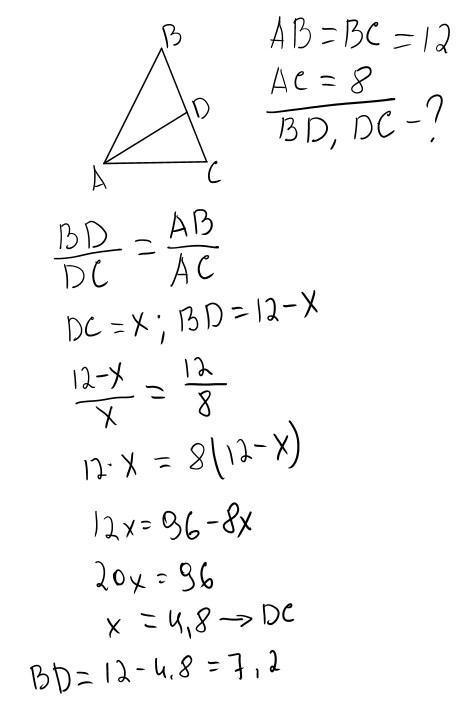 B
D
A
C
AB = BC = 12
AC = 8
BD, DC - ?
BD/DC = AB/AC
DC = x; BD = 12 - x
12-x/x = 12/8
12 · x = 8(12 - x)
12x = 96 - 8x
20x = 96
x = 4,8 → DC
BD = 12 - 4.8 = 7,2